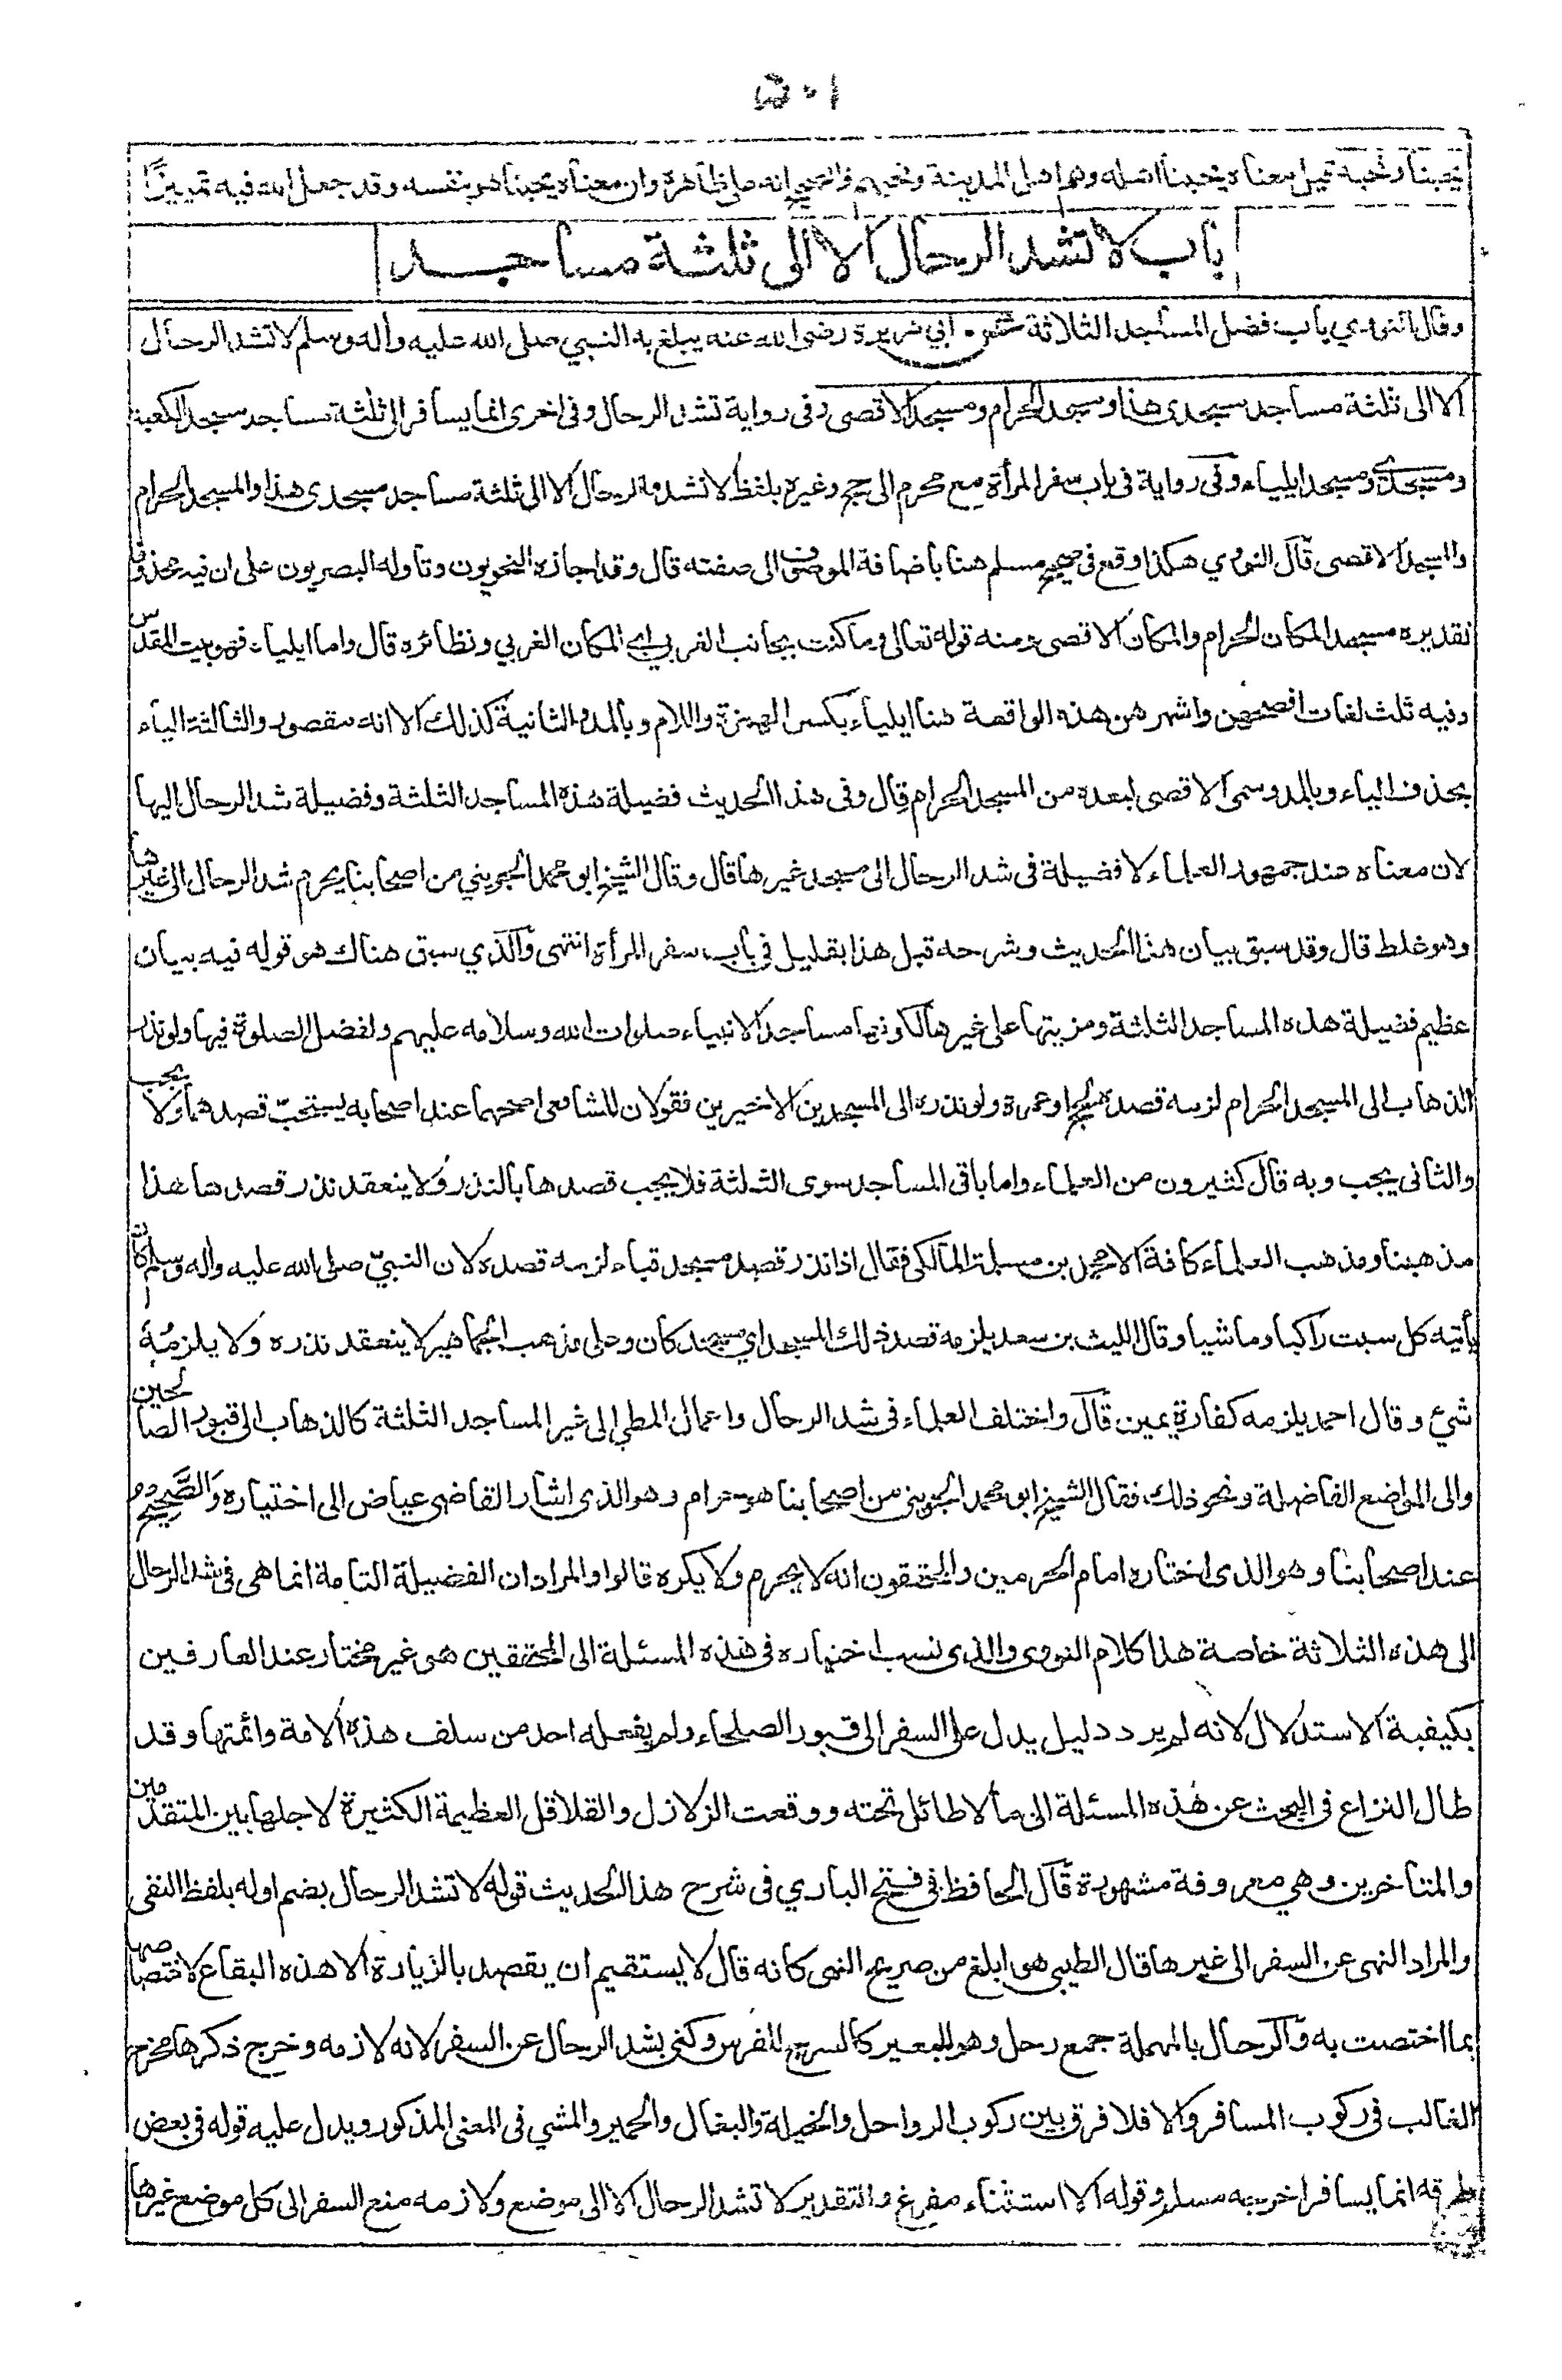 ٥٠١
يحبنا ونحبه قيل معناه يحبنا اهله وهم اهل المدينة ونحبهم والصحيح انه على ظاهره وان معناه يحبنا هو بنفسه وقد جعل الله فيه تمييزًا
باب لا تشد الرحال الا الى ثلثة مساجد
وقال النووي باب فضل المساجد الثلاثة عن ابي هريرة رضى الله عنه يبلغ به النبي صلى الله عليه وآله وسلم لا تشد الرحال
الا الى ثلثة مساجد مسجدى هذا ومسجد الحرام ومسجد الاقصى وفى رواية تشد الرحال وفى اخرى انما يسافر الى ثلثة مساجد مسجد الكعبة
ومسجدى ومسجد ايلياء وفى رواية فى باب سفر المرأة مع محرم الى حج وغيره بلفظ لا تشدوا الرحال الا الى ثلثة مساجد مسجدى هذا والمسجد الحرام
والمسجد الاقصى قال النووي هكذا وقع فى صحيح مسلم هنا باضافة الموصوف الى صفته قال وقد اجازه النحويون وتأوله البصريون على ان فيه محذوفا
تقديره مسجد المكان الحرام والمكان الاقصى ومنه قوله تعالى وما كنت بجانب الغربي اي المكان الغربي ونظائره قال واما ايلياء فهو بيت المقدس
وفيه ثلث لغات افصحهن واشهرهن هذه الواقعة هنا ايلياء بكسر الهمزة واللام وبالمد والثانية كذلك الا انه مقصور والثالثة الياء
بحذف الياء وبالمد وسمى الاقصى لبعده من المسجد الحرام قال وفى هذا الحديث فضيلة هذه المساجد الثلثة وفضيلة شد الرحال اليها
لان معناه عند جمهور العلماء لا فضيلة فى شد الرحال الى مسجد غيرها قال وقال الشيخ ابو محمد الجويني من اصحابنا يحرم شد الرحال الى غيرها
وهو غلط قال وقد سبق بيان هذا الحديث وشرحه قبل هذا بقليل فى باب سفر المرأة انتهى والذي سبق هناك هو قوله فيه بيان
عظيم فضيلة هذه المساجد الثلثة ومزيتها على غيرها لكونها مساجد الانبياء صلوات الله وسلامه عليهم ولفضل الصلوة فيها ولو نذر
الذهاب الى المسجد الحرام لزمه قصده لحج او عمرة ولو نذره الى المسجدين الاخيرين فقولان للشافعى اصحهما عند اصحابه يستحبّ قصدهما ولا يجب
والثانى يجب وبه قال كثيرون من العلماء واما باقى المساجد سوى الثلثة فلا يجب قصدها بالنذر ولا ينعقد نذر قصدها هذا
مذهبنا ومذهب العلماء كافة الا محمد بن مسلمة المالكى فقال اذا نذر قصد مسجد قباء لزمه قصده لان النبيّ صلى الله عليه وآله وسلم كان
يأتيه كل سبت راكبا وماشيا وقال الليث بن سعد يلزمه قصد ذلك المسجد اي مسجد كان وعلى مذهب الجماهير لا ينعقد نذره ولا يلزمه
شيء وقال احمد يلزمه كفارة يمين قال واختلف العلماء فى شد الرحال واعمال المطي الى غير المساجد الثلثة كالذهاب الى قبور الصالحين
والى المواضع الفاضلة ونحو ذلك فقال الشيخ ابو محمد الجويني من اصحابنا هو حرام وهو الذى اشار القاضى عياض الى اختياره والصَّحِيح
عند اصحابنا وهو الذى اختاره امام الحرمين والمحققون انه لا يحرم ولا يكره قالوا والمراد ان الفضيلة التامة انما هى فى شد الرحال
الى هذه الثلاثة خاصة هذا كلام النووى والذى نسب اختياره فى هذه المسئلة الى المحققين هى غير مختار عند العارفين
بكيفية الاستدلال لانه لم يرد دليل يدل على السفر الى قبور الصلحاء ولم يفعله احد من سلف هذه الامة وائمتها وقد
طال النزاع فى البحث عن هذه المسئلة الى ما لا طائل تحته ووقعت الزلازل والقلاقل العظيمة الكثيرة لاجلها بين المتقدمين
والمتأخرين وهي معروفة مشهورة قال الحافظ فى فتح الباري فى شرح هذا الحديث قوله لا تشد الرحال بضم اوله بلفظ النفى
والمراد النهى عن السفر الى غيرها قال الطيبى هو ابلغ من صريح النهى كانه قال لا يستقيم ان يقصد بالزيارة الا هذه البقاع لاختصاصها
بما اختصت به والرحال بالمهملة جمع رحل وهو للبعير كالسرج للفرس وكنى بشد الرحال عن السفر لانه لازمه وخرج ذكرها مخرج
الغالب فى ركوب المسافر والا فلا فرق بين ركوب الرواحل والخيل والبغال والحمير والمشي فى المعنى المذكور ويدل عليه قوله فى بعض
طرقه انما يسافر اخرجه مسلم وقوله الا استثناء مفرغ والتقدير لا تشد الرحال الا الى موضع ولازمه منع السفر الى كل موضع غيرها